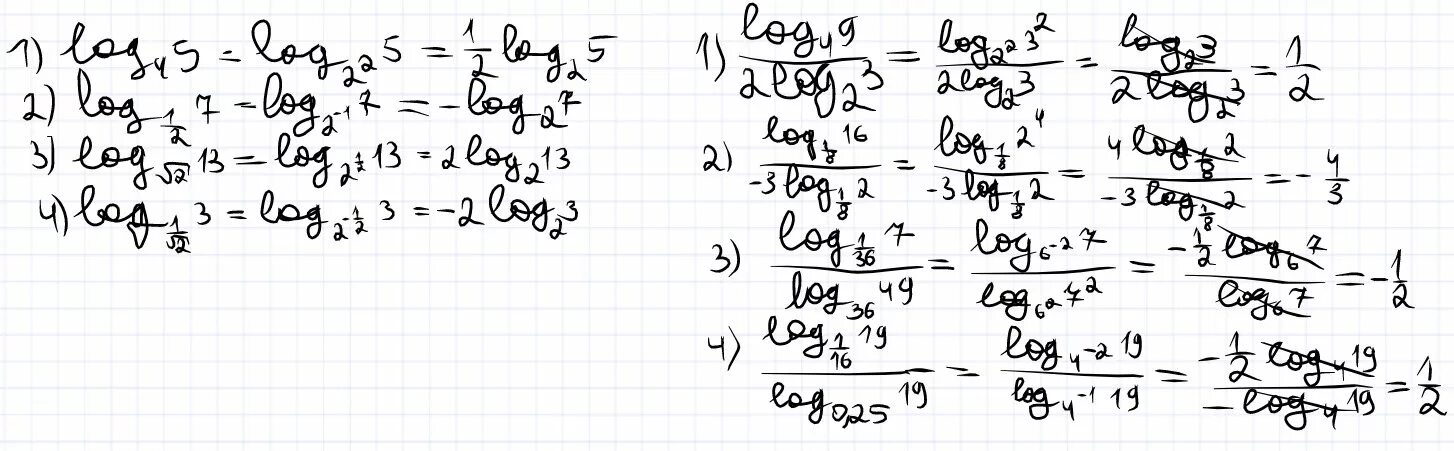 1) log₄5 = log_{2²}5 = 1/2 log₂5
2) log_{1/2}7 = log_{2⁻¹}7 = -log₂7
3) log_{√2}13 = log_{2^{1/2}}13 = 2log₂13
4) log_{1/√2}3 = log_{2^{-1/2}}3 = -2log₂3
1) log₄9 / 2log₂3 = log_{2²}3² / 2log₂3 = log₂3 / 2log₂3 = 1/2
2) log_{1/8}16 / -3log_{1/8}2 = log_{1/8}2⁴ / -3log_{1/8}2 = 4log_{1/8}2 / -3log_{1/8}2 = -4/3
3) log_{1/36}7 / log₃₆49 = log_{6⁻²}7 / log_{6²}7² = -1/2 log₆7 / log₆7 = -1/2
4) log_{1/16}19 / log_{0,25}19 = log_{4⁻²}19 / log_{4⁻¹}19 = -1/2 log₄19 / -log₄19 = 1/2